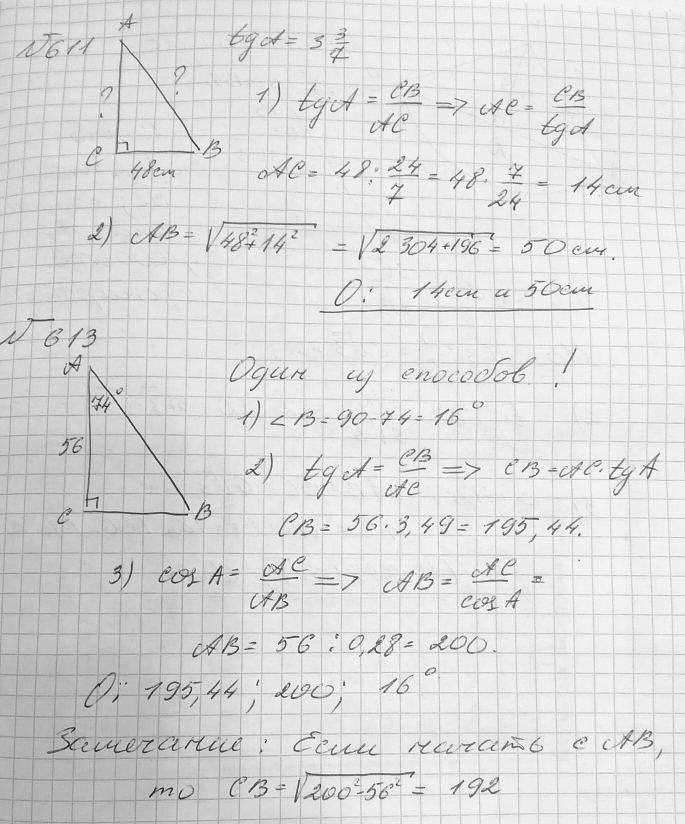 №611
A
tgA = 3 3/7
?
?
1) tgA = CB/AC => AC = CB/tgA
C
B
48см
AC = 48 : 24/7 = 48 · 7/24 = 14см
2) AB = √48²+14² = √2 304+196 = 50 см.
О: 14см и 50см
№ 613
A
74°
Один из способов!
1) ∠B = 90-74 = 16°
56
2) tgA = CB/AC => CB = AC·tgA
C
B
CB = 56·3,49 = 195,44.
3) cosA = AC/AB => AB = AC/cosA =
AB = 56 : 0,28 = 200.
О: 195,44; 200; 16°
Замечание: Если начать с AB,
то CB = √200²-56² = 192